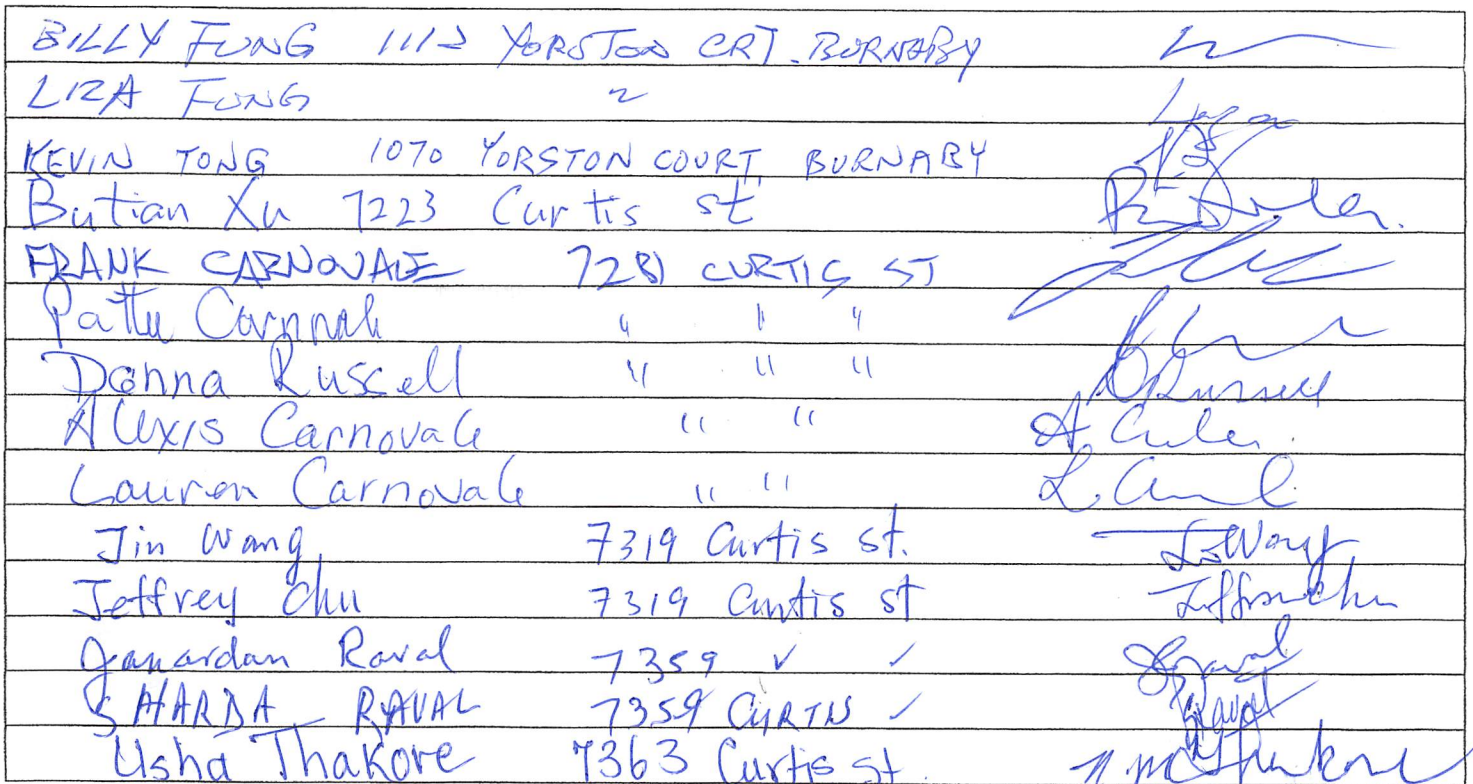 BILLY FUNG 1112 YORSTON CRT. BURNABY
LIZA FUNG "
KEVIN TONG 1070 YORSTON COURT, BURNABY
Butian Xu 7223 Curtis st
FRANK CARNOVALE 7281 CURTIS ST
Patti " " "
Donna Russell " " " Russell
Alexis Carnovale " " A.
Lauren Carnovale " " L.
Jin Wang 7319 Curtis st. J. Wang
Jeffrey Chu 7319 Curtis st
Janardan Raval 7359 ✓ ✓
SHARDA RAVAL 7359 CURTIS ✓ Raval
Usha Thakore 7363 Curtis st. Thakore